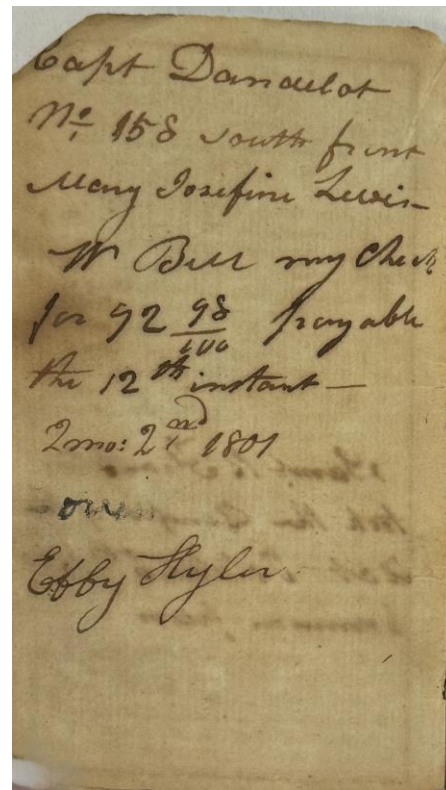 Capt Dandelot
No. 158 south front
Mary Josefine Lewis
Wm Bell my Check
for 92 98/100 payable
the 12th instant —
2mo: 2nd 1801
Effy Hyler